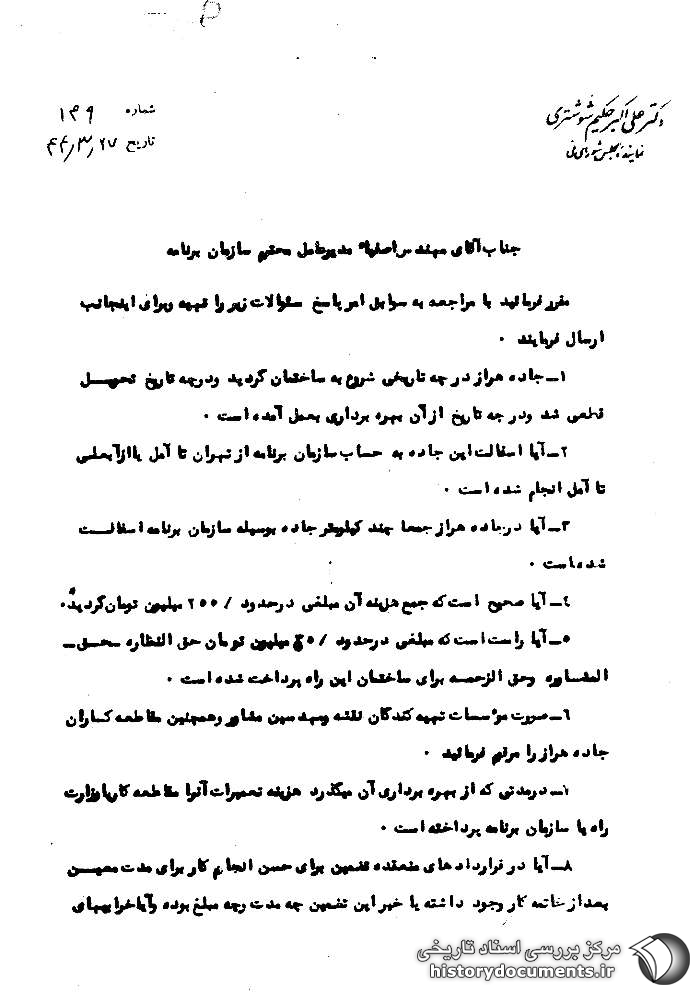 دکتر علی اکبر حکیم شوشتری
نماینده مجلس شورای ملی
شماره ۱۴۹
تاریخ ۴۴٫۳٫۲۷
جناب آقای مهندس اصفیاء مدیرعامل محترم سازمان برنامه
مقرر فرمائید با مراجعه به سوابق امر پاسخ سئوالات زیر را تهیه وبرای اینجانب
ارسال فرمایند ۰
۱ـ جاده هراز در چه تاریخی شروع به ساختمان گردید ودرچه تاریخ تحویل
قطعی شد ودر چه تاریخ از آن بهره برداری بعمل آمده است ۰
۲ـ آیا اسفالت این جاده به حساب سازمان برنامه از تهران تا آمل یا از آبعلی
تا آمل انجام شده است ۰
۳ـ آیا در جاده هراز جمعا چند کیلومتر جاده بوسیله سازمان برنامه اسفالت
شده است ۰
۴ـ آیا صحیح است که جمع هزینه آن مبلغی درحدود /۲۵۵ میلیون تومان گردیده ۰
۵ـ آیا راست است که مبلغی درحدود / میلیون تومان حق النظاره حق
المشاوره وحق الزحمه برای ساختمان این راه پرداخت شده است ۰
۶ـ صورت مؤسسات تهیه کنندگان نقشه ومهندسین مشاور وهمچنین مقاطعه کاران
جاده هراز را مرقوم فرمائید ۰
درمدتی که از بهره برداری آن میگذرد هزینه تعمیرات آنرا مقاطعه کار یا وزارت
راه یا سازمان برنامه پرداخته است ۰
۸ـ آیا در قرارداد های منعقده تضمین برای حسن انجام کار برای مدت معین
بعد از خاتمه کار وجود داشته یا خیر این تضمین چه مدت وچه مبلغ بوده وآیا خرابیهای
مرکز بررسی اسناد تاریخی
historydocuments.ir